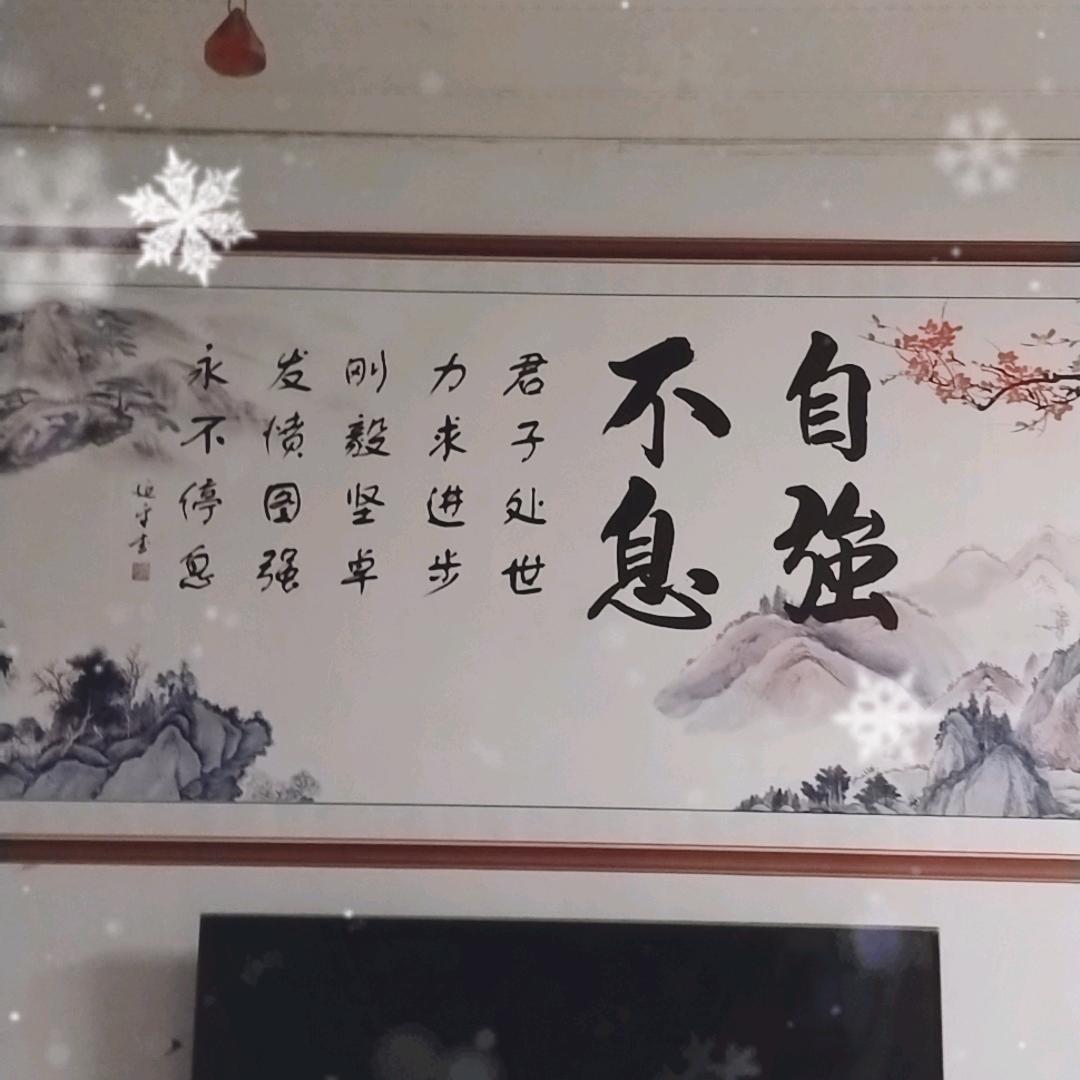 自強
不息
君子处世
力求进步
刚毅坚卓
发愤图强
永不停息